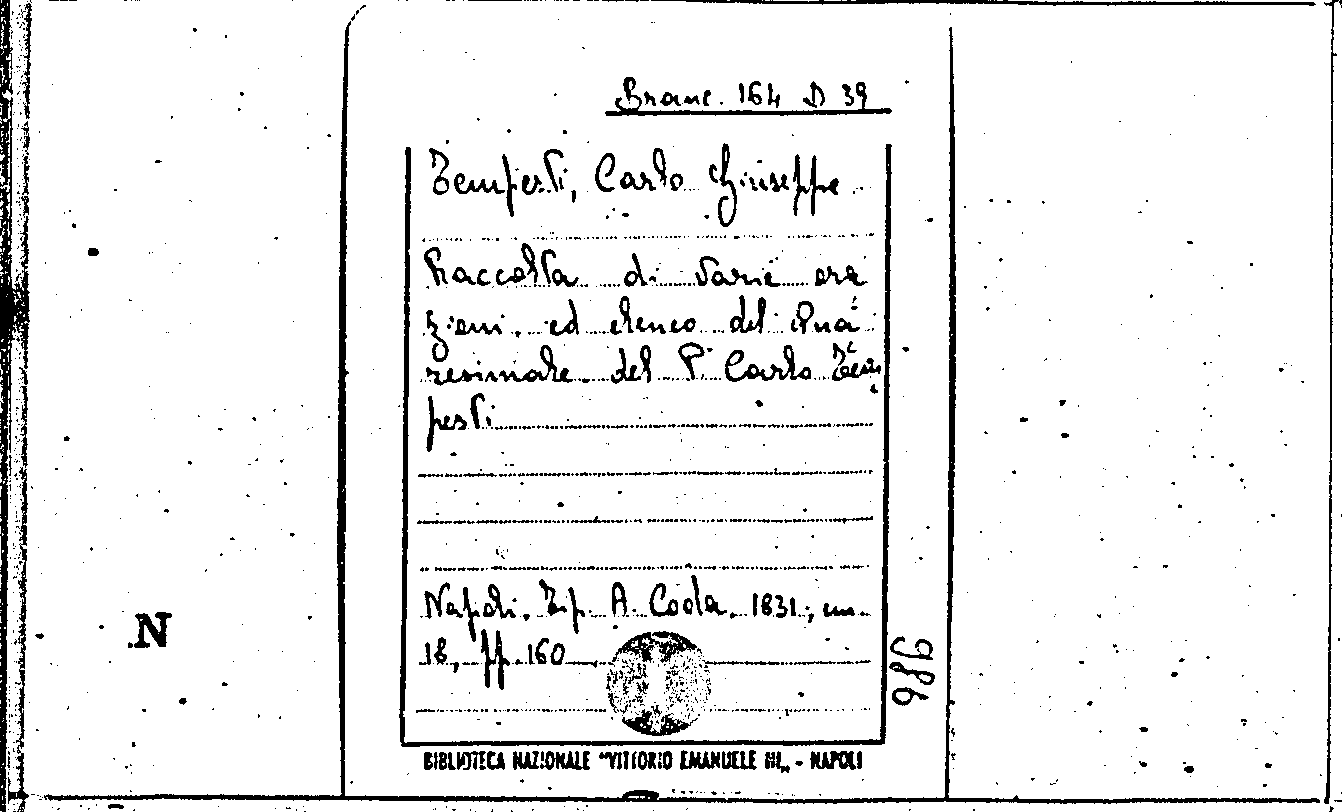 Branc. 164 D 39
Tempesti, Carlo Giuseppe
Raccolta di varie ora
zioni ed elenco del Qua
resimale del P. Carlo Tem
pesti
Napoli. Tip. A. Coda. 1831, in-
18, pp. 160
986
N
BIBLIOTECA NAZIONALE "VITTORIO EMANUELE III„ - NAPOLI